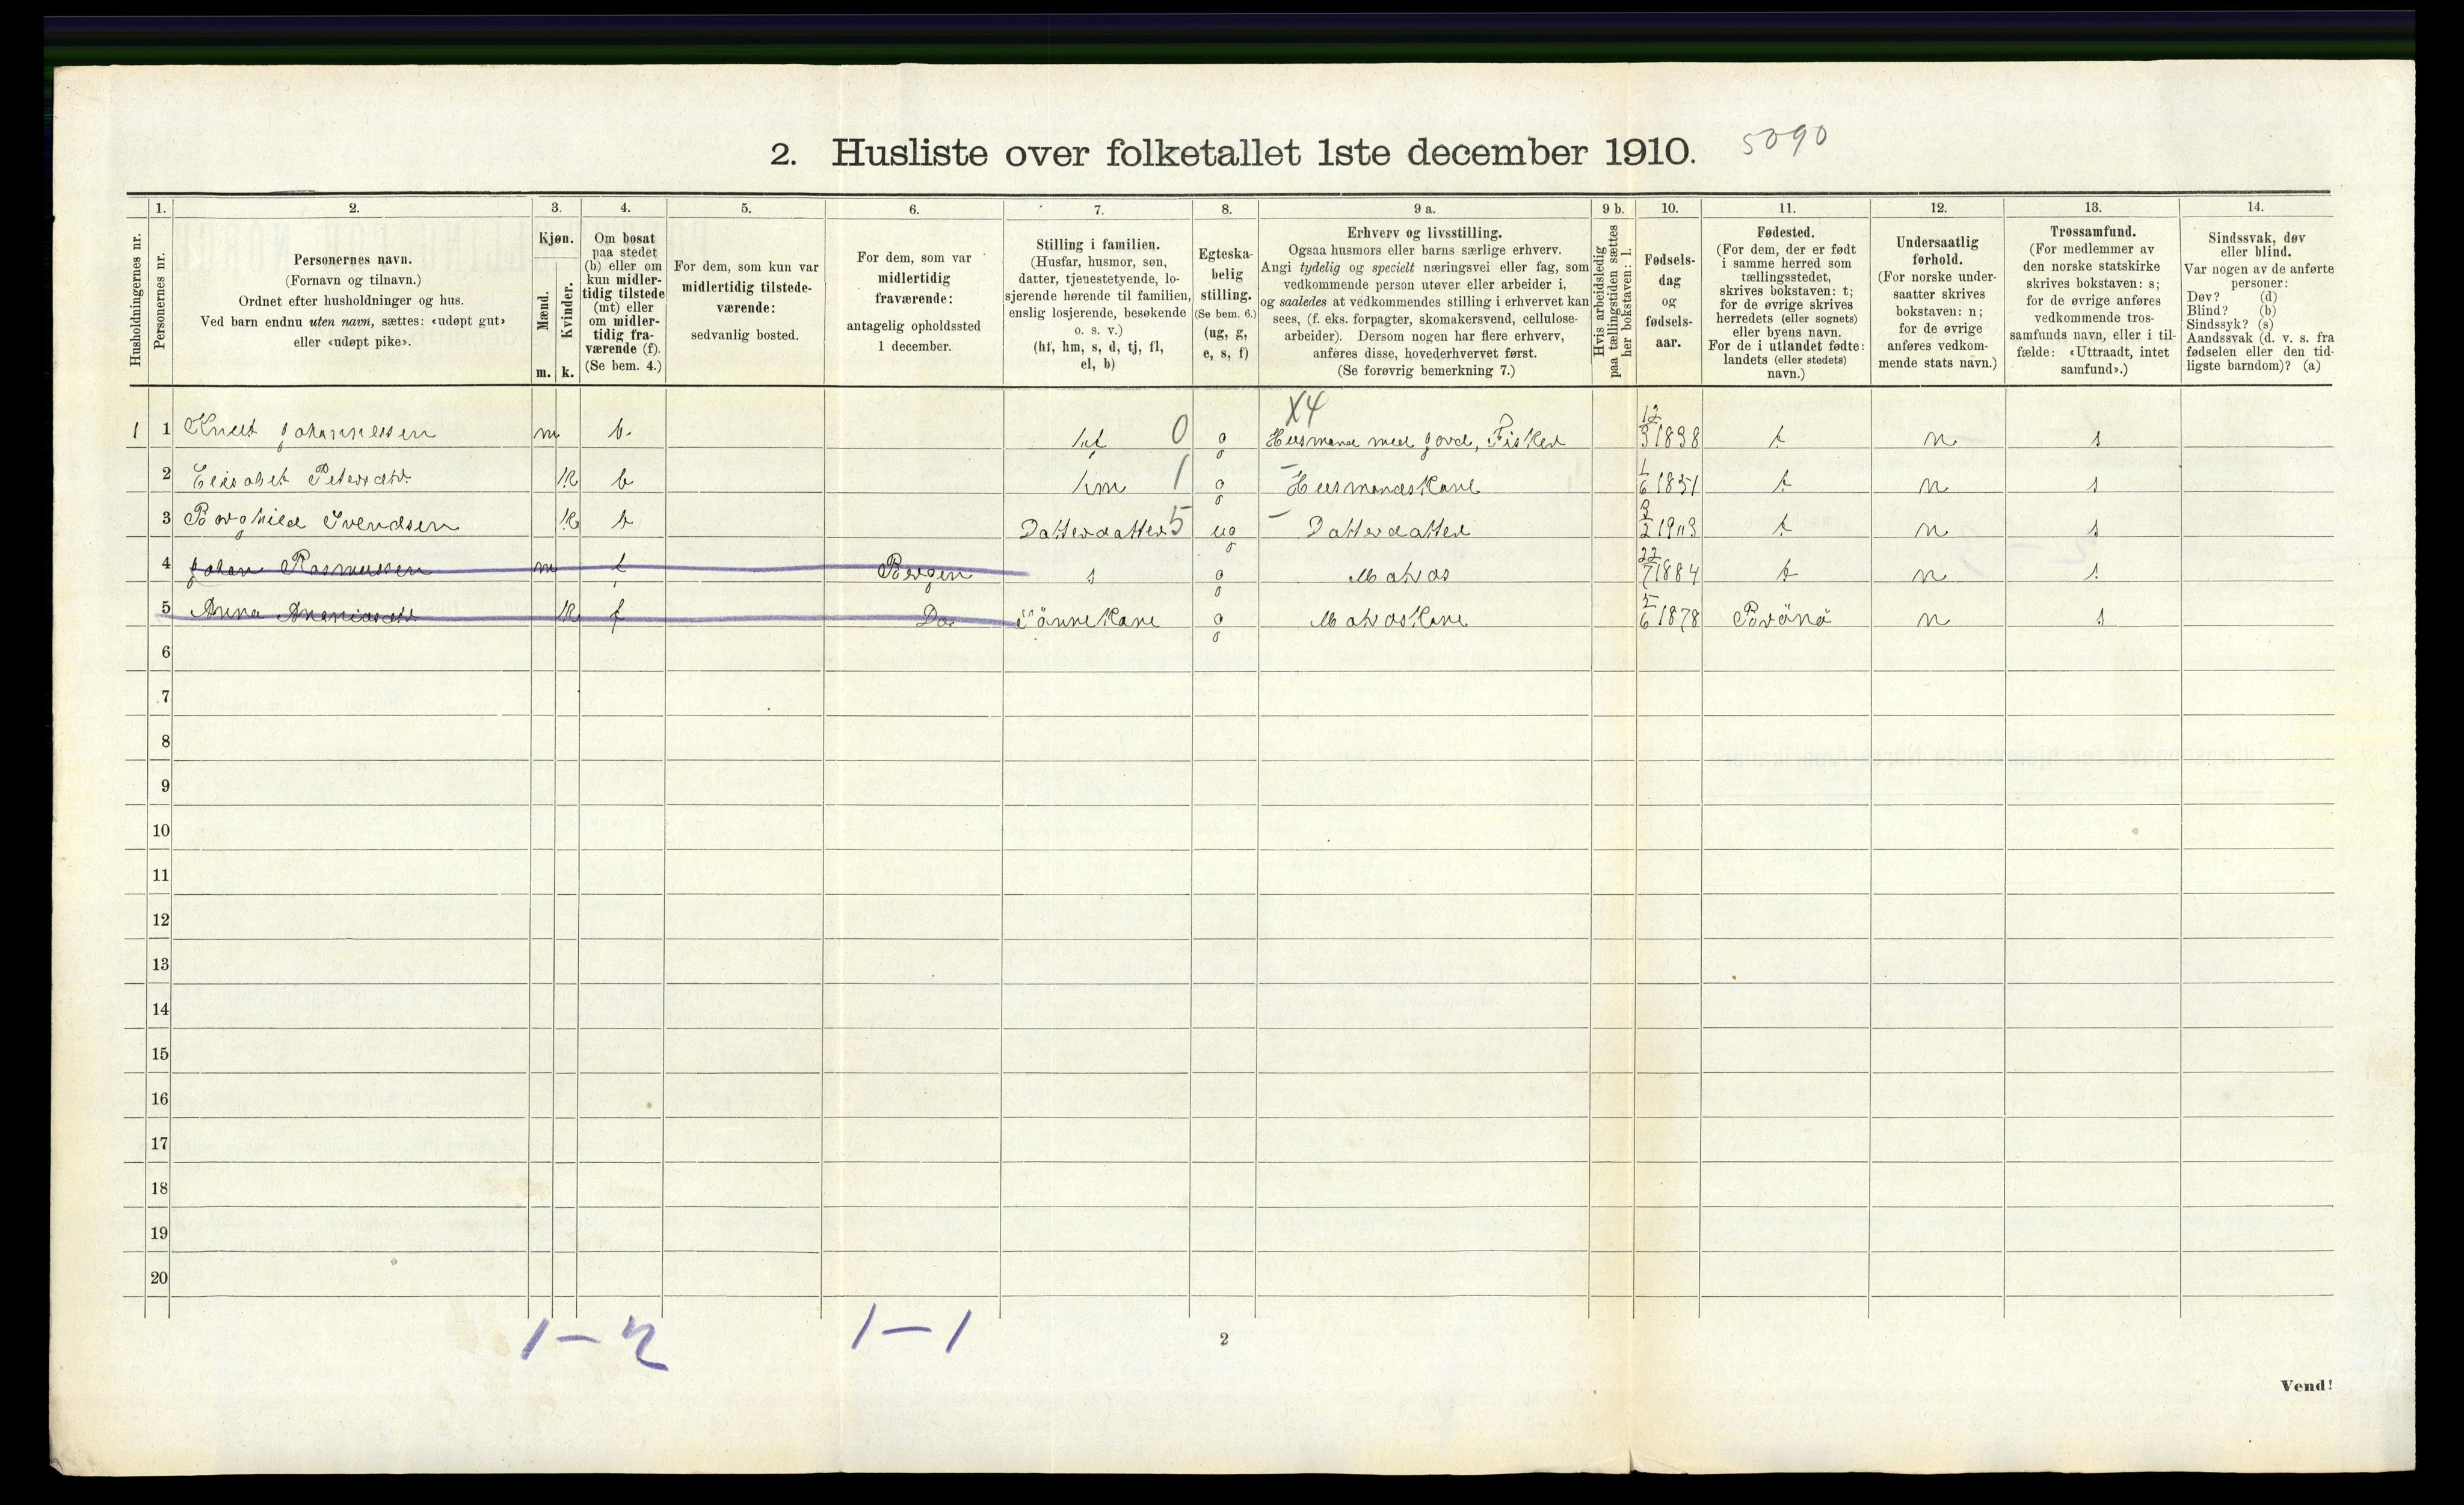 2. Husliste over folketallet 1ste december 1910. 5090
Husholdningernes nr.
1.
Personernes nr.
2.
Personernes navn.
(Fornavn og tilnavn.)
Ordnet efter husholdninger og hus.
Ved barn endnu uten navn, sættes: «udøpt gut»
eller «udøpt pike».
3.
Kjøn.
Mænd.
Kvinder.
m. k.
4.
Om bosat
paa stedet
(b) eller om
kun midler-
tidig tilstede
(mt) eller
om midler-
tidig fra-
værende (f).
(Se bem. 4.)
5.
For dem, som kun var
midlertidig tilstede-
værende:
sedvanlig bosted.
6.
For dem, som var
midlertidig
fraværende:
antagelig opholdssted
1 december.
7.
Stilling i familien.
(Husfar, husmor, søn,
datter, tjenestetyende, lo-
sjerende hørende til familien,
enslig losjerende, besøkende
o. s. v.)
(hf, hm, s, d, tj, fl,
el, b)
8.
Egteska-
belig
stilling.
(Se bem. 6.)
(ug, g,
e, s, f)
9 a.
Erhverv og livsstilling.
Ogsaa husmors eller barns særlige erhverv.
Angi tydelig og specielt næringsvei eller fag, som
vedkommende person utøver eller arbeider i,
og saaledes at vedkommendes stilling i erhvervet kan
sees, (f. eks. forpagter, skomakersvend, cellulose-
arbeider). Dersom nogen har flere erhverv,
anføres disse, hovederhvervet først.
(Se forøvrig bemerkning 7.)
9 b.
Hvis arbeidsledig
paa tællingstiden sættes
her bokstaven: l.
10.
Fødsels-
dag
og
fødsels-
aar.
11.
Fødested.
(For dem, der er født
i samme herred som
tællingsstedet,
skrives bokstaven: t;
for de øvrige skrives
herredets (eller sognets)
eller byens navn.
For de i utlandet fødte:
landets (eller stedets)
navn.)
12.
Undersaatlig
forhold.
(For norske under-
saatter skrives
bokstaven: n;
for de øvrige
anføres vedkom-
mende stats navn.)
13.
Trossamfund.
(For medlemmer av
den norske statskirke
skrives bokstaven: s;
for de øvrige anføres
vedkommende tros-
samfunds navn, eller i til-
fælde: «Uttraadt, intet
samfund».)
14.
Sindssvak, døv
eller blind.
Var nogen av de anførte
personer:
Døv? (d)
Blind? (b)
Sindssyk? (s)
Aandssvak (d. v. s. fra
fødselen eller den tid-
ligste barndom)? (a)
X4
1 1 Knut Johannessen m b hf 0 g Husmand med jord, Fisker 12/3 1838 t n s
2 Elisabet Petersdtr. k b hm 1 g - Husmandskone 1/6 1851 t n s
3 Borghild Svendsen k b Datterdatter 5 ug - Datterdatter 3/2 1903 t n s
4 Johan Rasmussen m f Bergen s g Matros 22/7 1884 t n s
5 Anna Ananiasdtr. k f Do. Sönnekone g Matroskone 5/6 1878 Brönö n s
6
7
8
9
10
11
12
13
14
15
16
17
18
19
20
1-2 1-1
2
Vend!